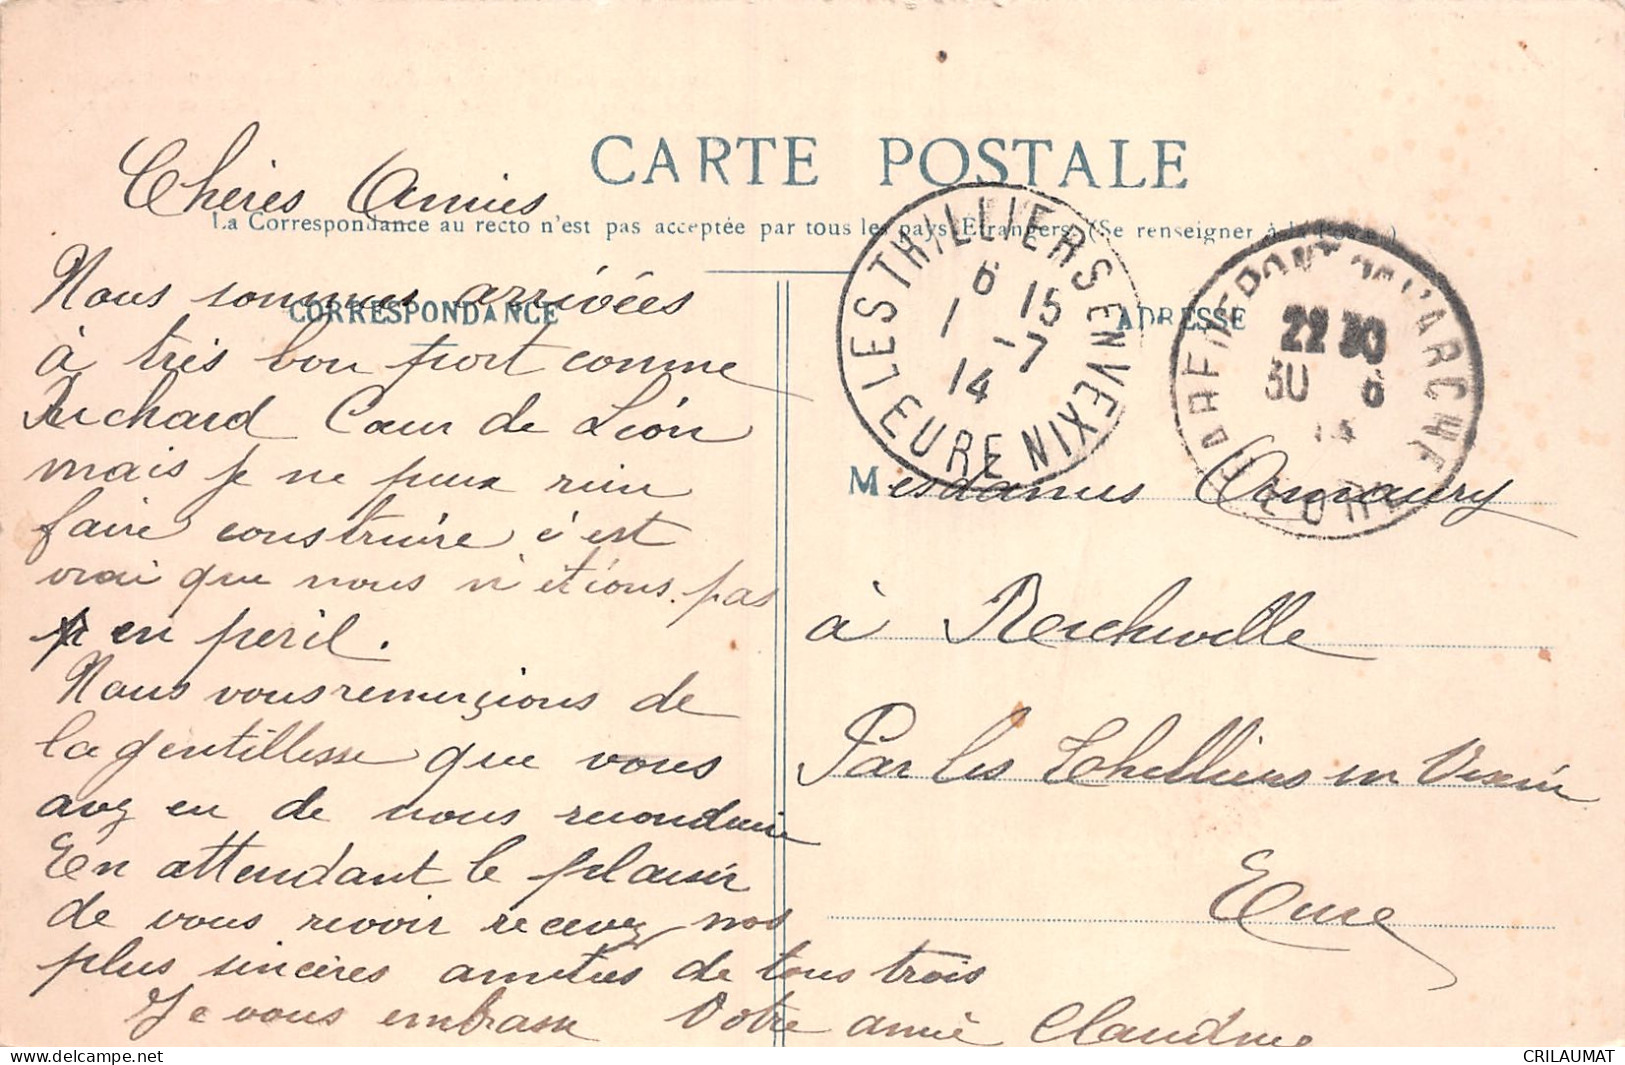 CARTE POSTALE
La Correspondance au recto n'est pas acceptée par tous les pays Étrangers. (Se renseigner à la Poste.)
CORRESPONDANCE
ADRESSE
Chères Amies
Nous sommes arrivées
à très bon port comme
Richard Cœur de Lion
mais je ne peux rien
faire construire c'est
vrai que nous n'étions pas
en peril.
Nous vous remerçions de
la gentillesse que vous
avez eu de nous reconduire
En attendant le plaisir
de vous revoir recevez nos
plus sincères amities de tous trois
Je vous embrasse Votre amie Claudine
LES THILLIERS EN VEXIN EURE
6 15
1 -7
14
PONT DE L'ARCHE
EURE
22 30
30 6
14
Mesdames Amaury
à Richeville
Par les Thilliers en Vexin
Eure
CRILAUMAT